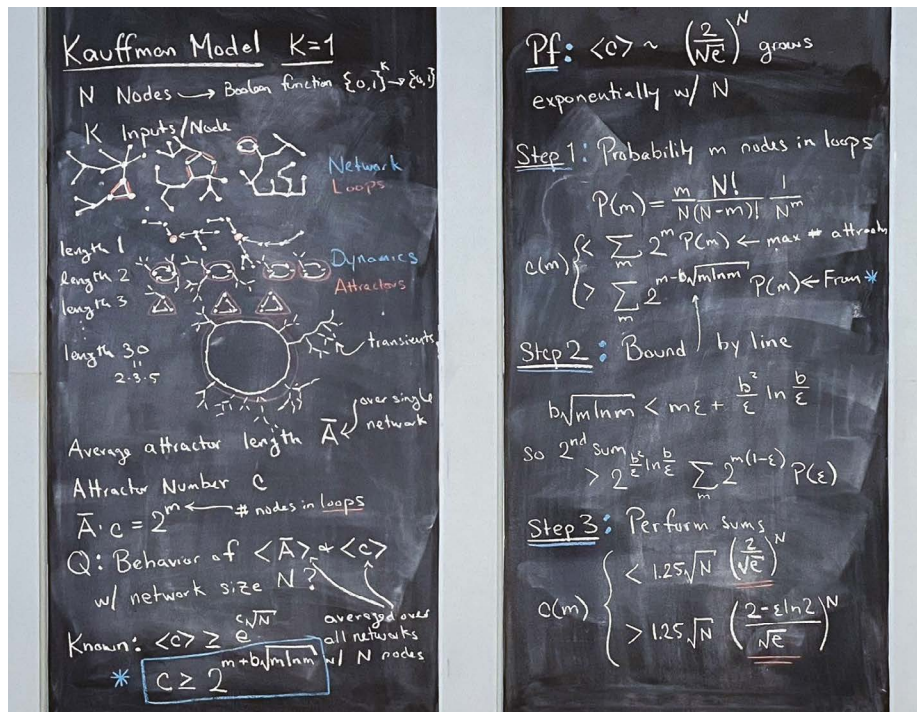 Kauffman Model K=1
N Nodes → Boolean function {0,1}^K → {0,1}
K Inputs/Node
Network
Loops
length 1
length 2
Dynamics
Attractors
length 3
⋮
length 30
=
2·3·5
transients
Average attractor length Ā ← over single network
Attractor Number c
Ā·c = 2^m ← # nodes in loops
Q: Behavior of <Ā> & <c>
w/ network size N?
averaged over
all networks
w/ N nodes
Known: <c> ≥ e^{c√N}
* c ≥ 2^{m+b√(m ln m)}
Pf: <c> ~ (2/√e)^N grows
exponentially w/ N
Step 1: Probability m nodes in loops
P(m) = m/N N!/(N-m)! 1/N^m
c(m) { < ∑_m 2^m P(m) ← max # attractors
> ∑_m 2^{m-b√(m ln m)} P(m) ← From *
Step 2: Bound by line
b√(m ln m) < mε + b²/ε ln b/ε
So 2nd sum
> 2^{b²/ε ln b/ε} ∑_m 2^{m(1-ε)} P(ε)
Step 3: Perform sums
c(m) { < 1.25√N (2/√e)^N
> 1.25√N ((2-εln2)/√e)^N